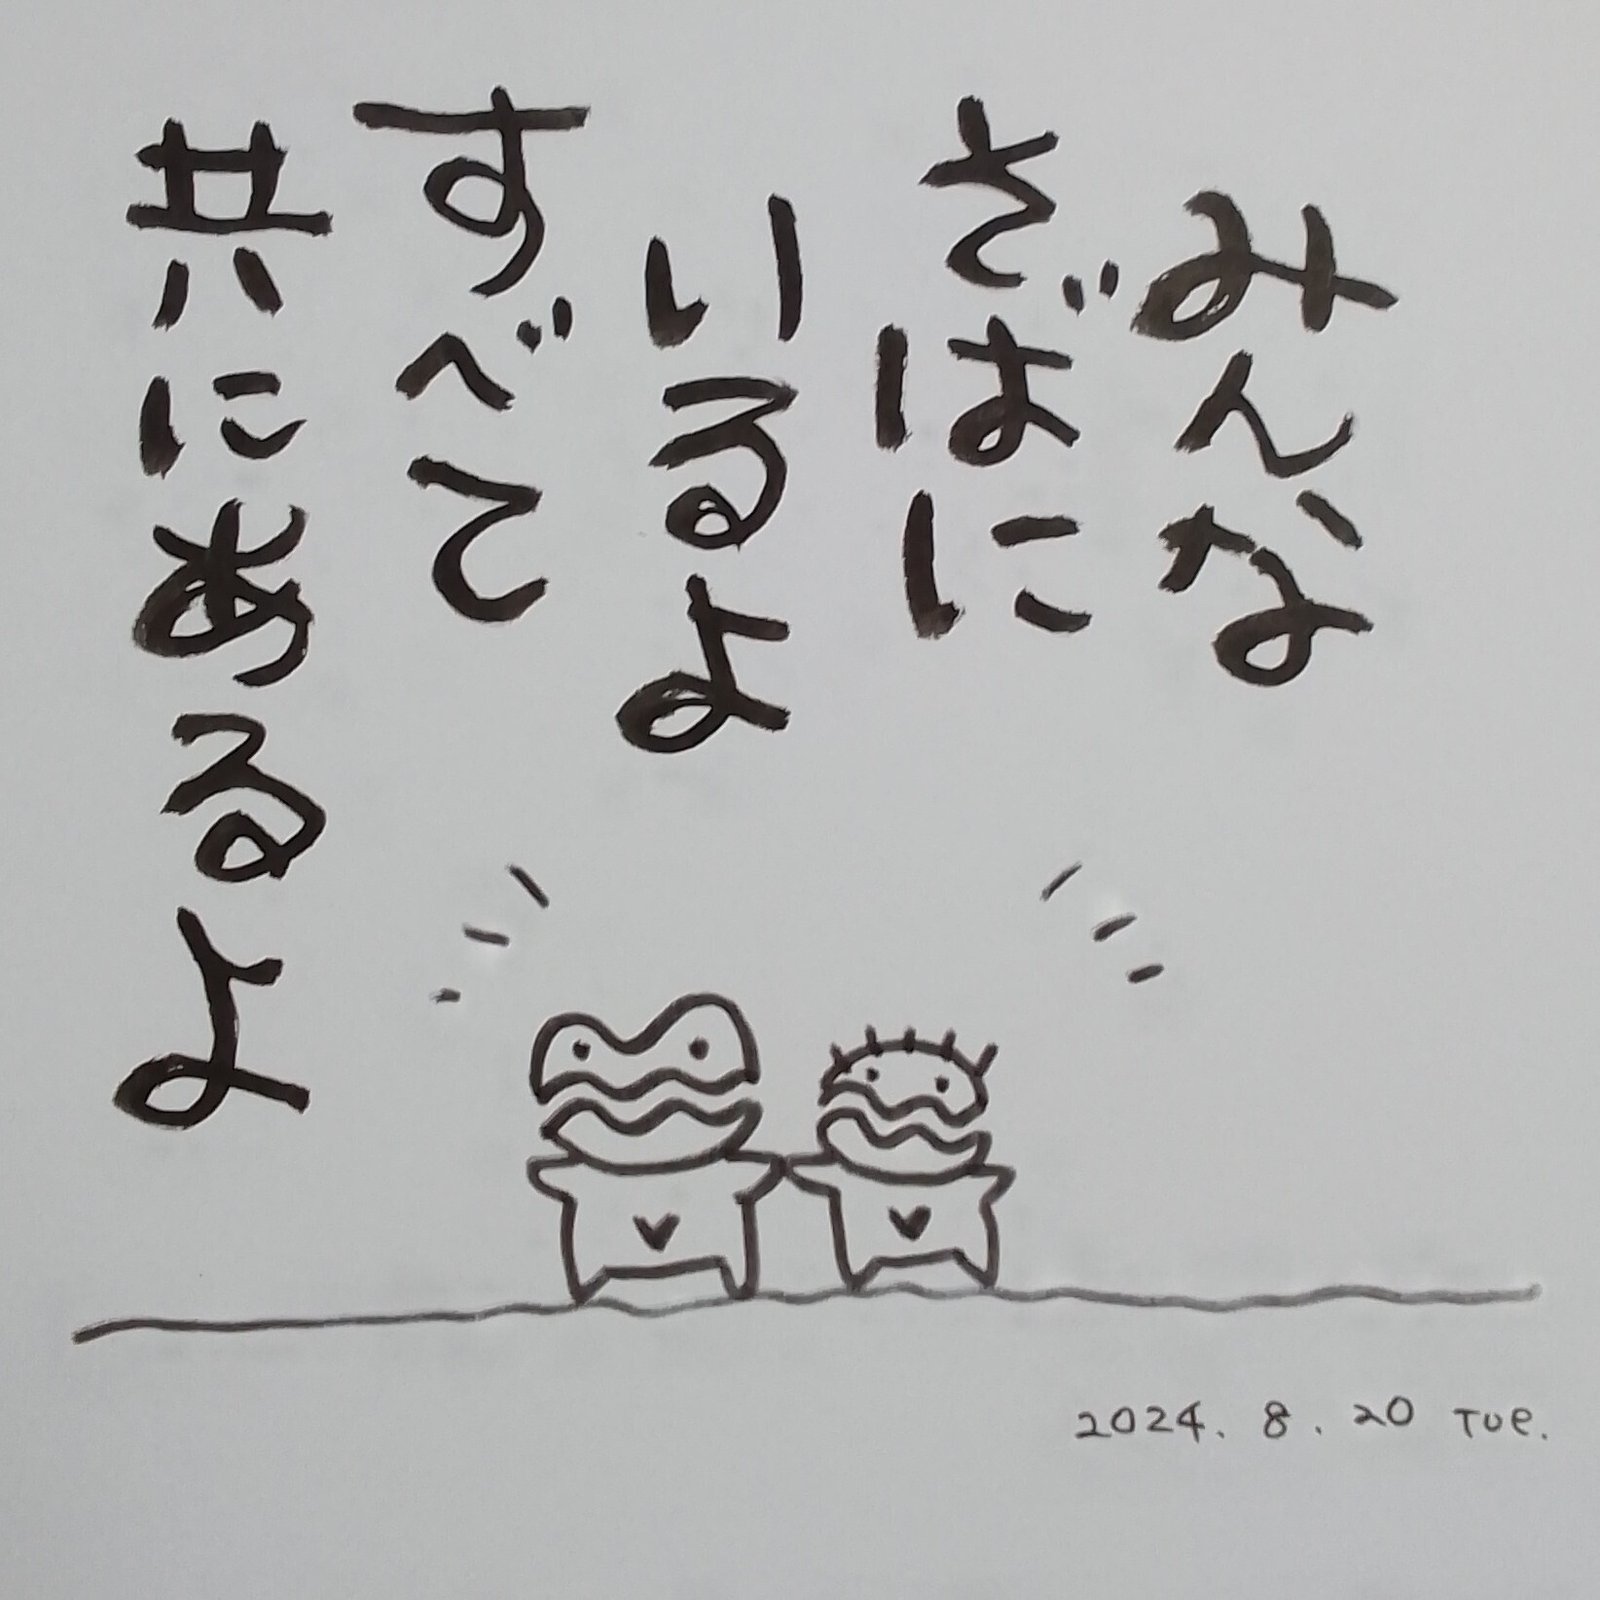 みんな
そばに
いるよ
すべて
共にあるよ
2024. 8. 20 Tue.